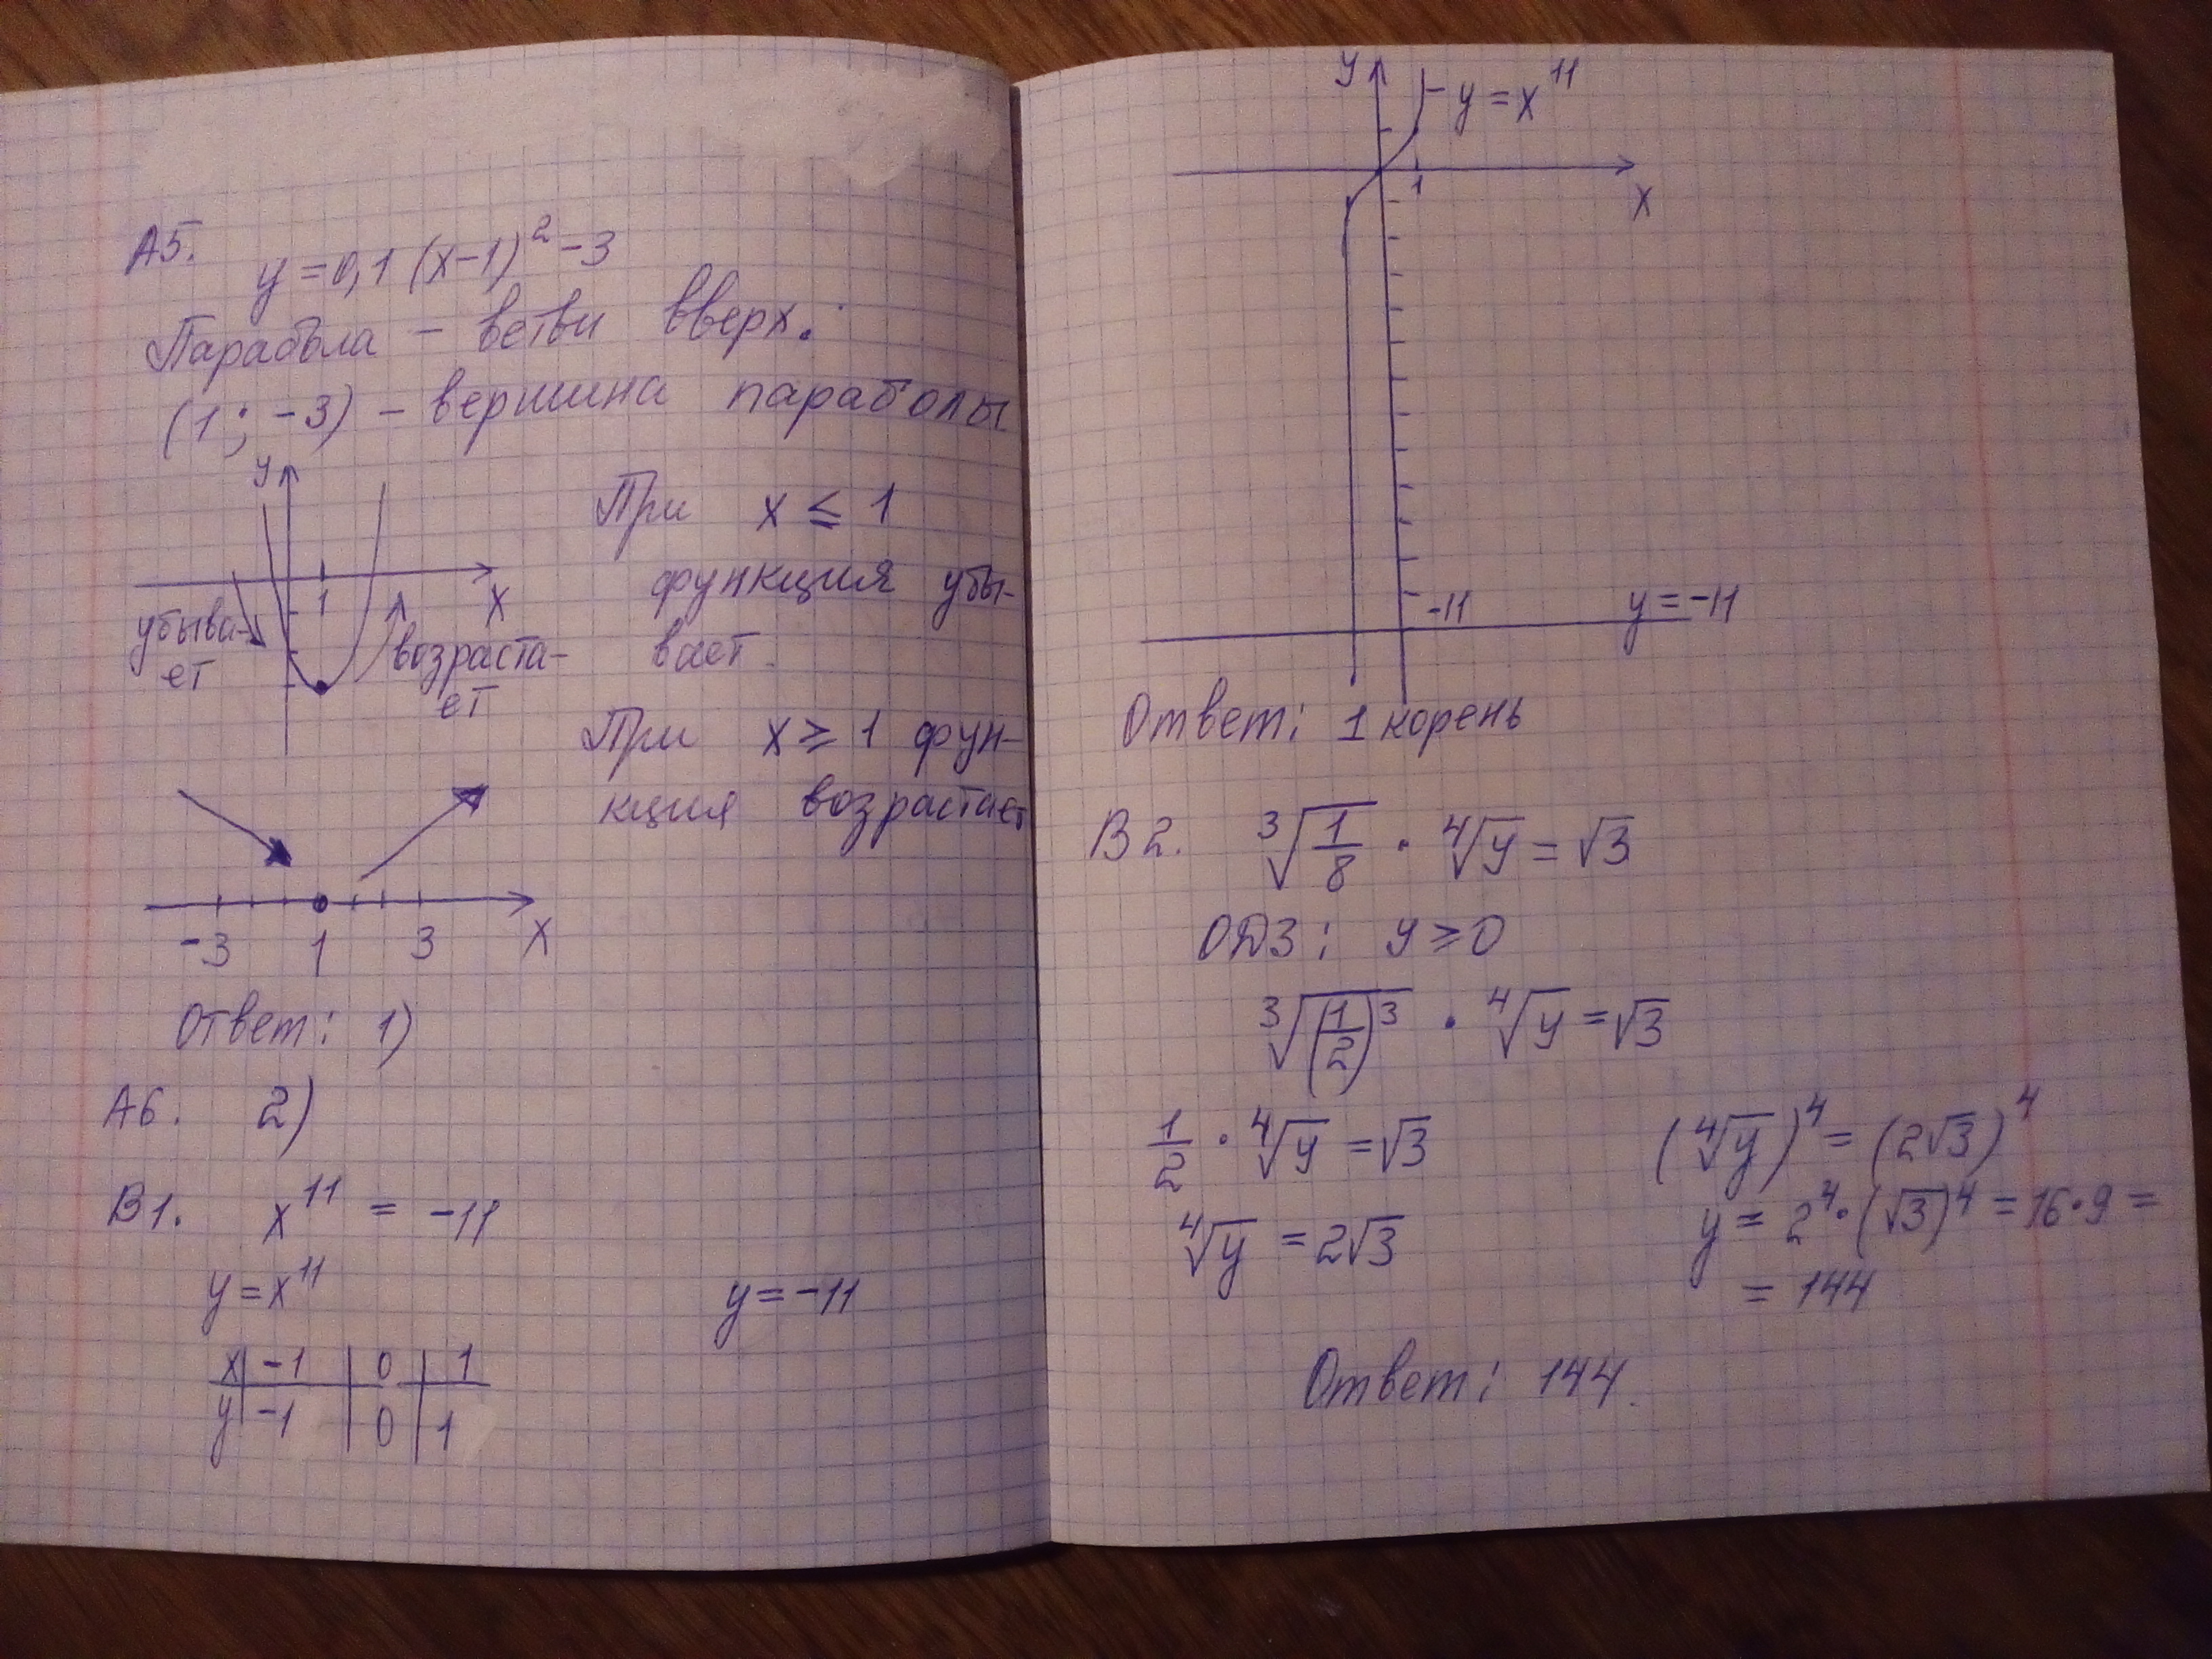 А5.
y = 0,1 (x-1)² - 3
Парабола - ветви вверх.
(1; -3) - вершина параболы
y
1
x
убыва-
ет
возраста-
ет
При x ≤ 1
функция убы-
вает.
При x ≥ 1 фун-
кция возрастает
-3 1 3 x
Ответ: 1)
А6. 2)
В1. x¹¹ = -11
y = x¹¹ y = -11
x | -1 | 0 | 1
y | -1 | 0 | 1
y
y = x¹¹
1
x
-11 y = -11
Ответ: 1 корень
В2. ∛(1/8) · ∜y = √3
ОДЗ: y ≥ 0
∛((1/2)³) · ∜y = √3
1/2 · ∜y = √3
∜y = 2√3
(∜y)⁴ = (2√3)⁴
y = 2⁴ · (√3)⁴ = 16·9 =
= 144
Ответ: 144.